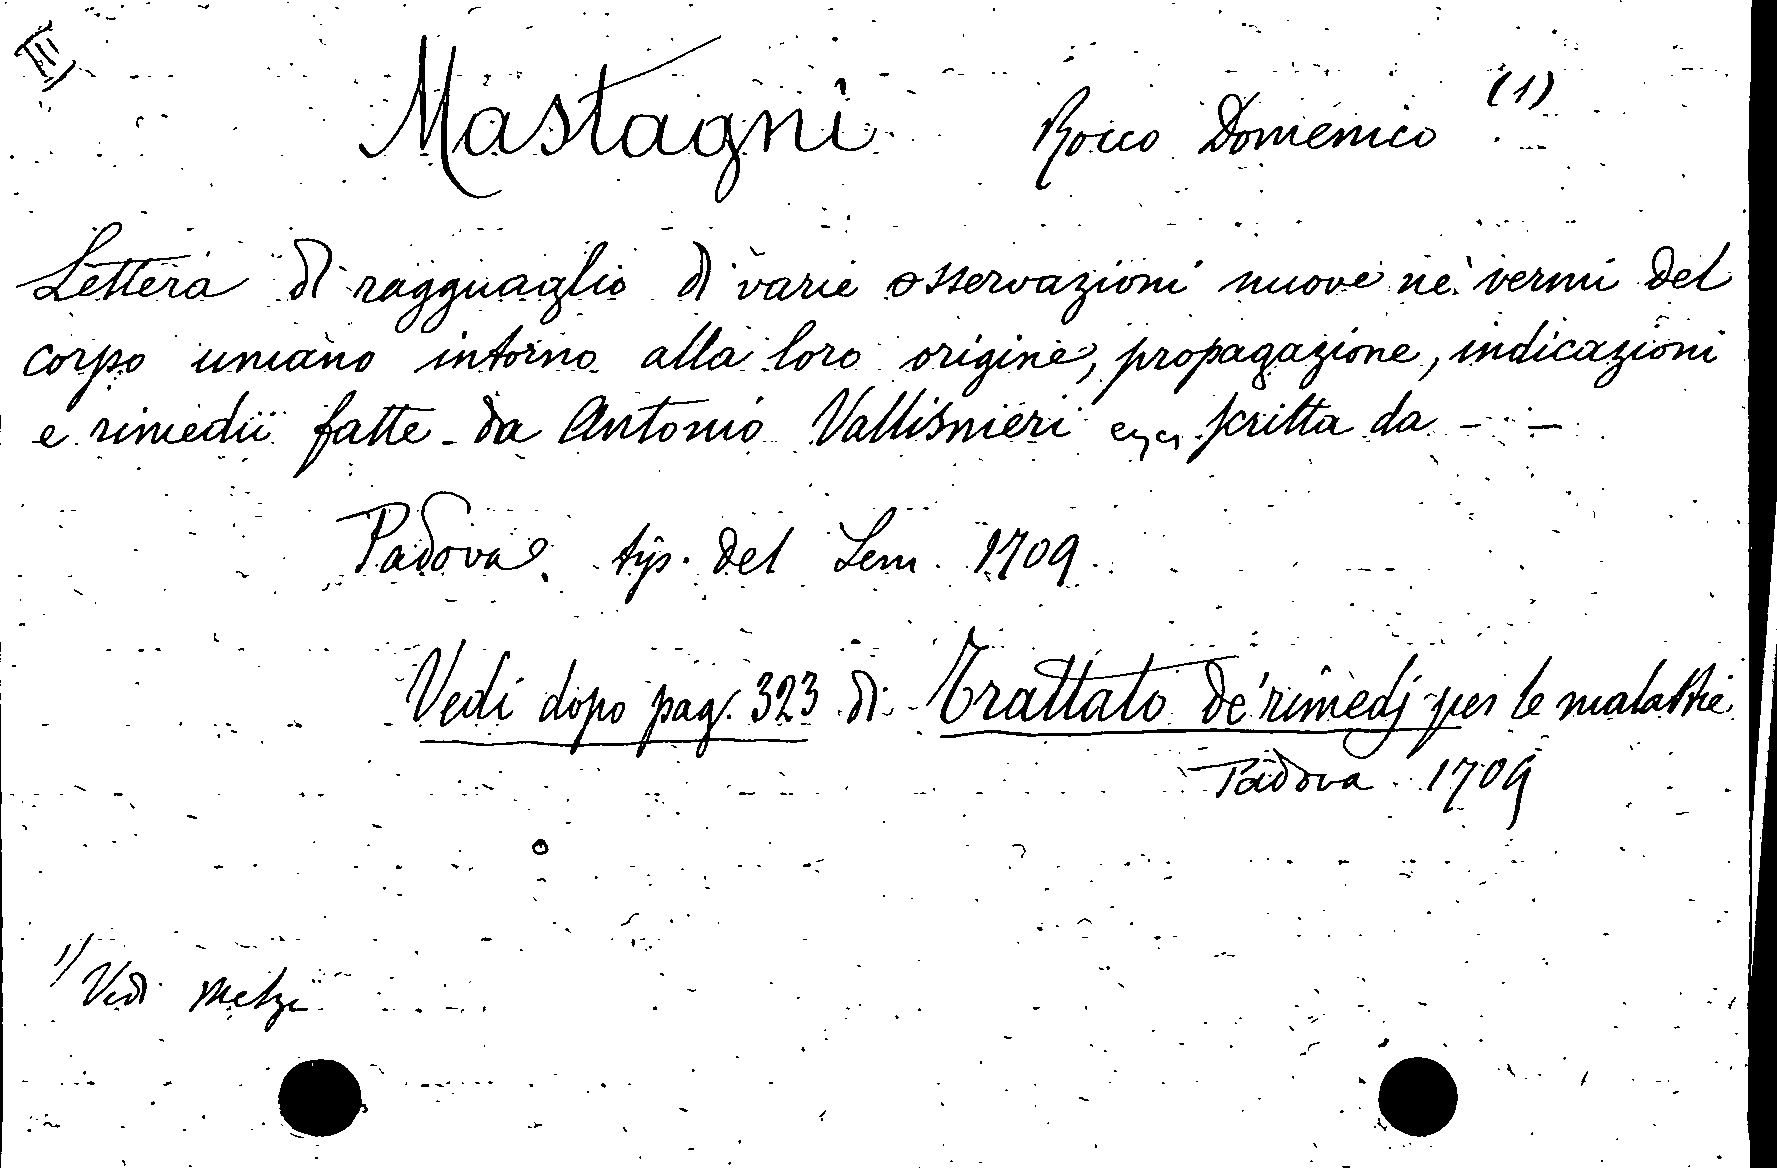 III
Mastagni Rocco Domenico (1)
Lettera di ragguaglio di varie osservazioni nuove ne' vermi del
corpo umano intorno alla loro origine, propagazione, indicazioni
e rimedii fatte da Antonio Vallisnieri scritta da - -
Padova. tip. del Sem. 1709
Vedi dopo pag. 323 di Trattato de' rimedj per le malattie
Padova 1709
1) Vedi